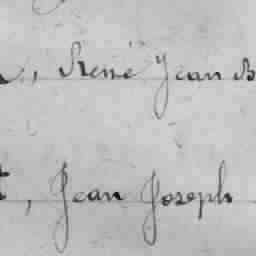 , René Jean B
t, Jean Joseph